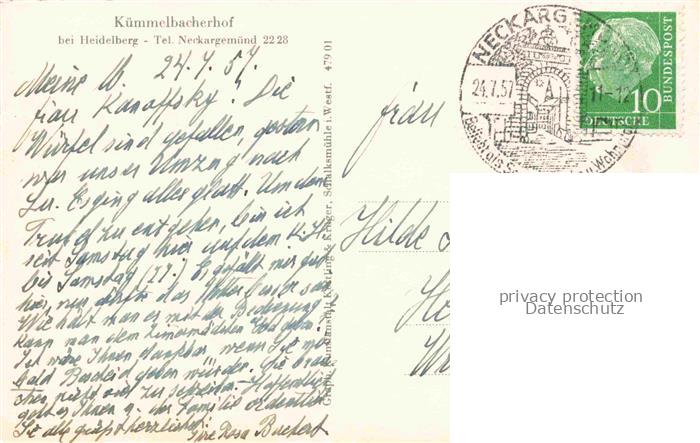 Kümmelbacherhof
bei Heidelberg - Tel. Neckargemünd 22 28
24.7.57
Meine lb.
frau Kanoffsky! Die
Würfel sind gefallen, gestern
war unser Umzug nach
Es ging alles glatt. Um dem
Trubel zu entgehen, bin ich
seit Samstag hier auf dem K.H.
bis Samstag (27.) Es gefällt mir gut
hier, nur dürfte das Wetter besser sein
Wie hält man es mit der Bedienung
kann man dem Zimmermädchen Geld geben?
Ich wäre Ihnen dankbar, wenn Sie mir
bald Bescheid geben würden. Sie brau-
chen nicht viel zu schreiben. Hoffentlich
geht es Ihnen u. der Familie ordentlich
Sie alle grüßt herzlichst
Ihre Rosa Buchert
Graph. Kunstanstalt Kösling & Krüger, Schalksmühle i. Westf. 479 01
frau
Hilde
NECKARG
24.7.57
11-12
10
DEUTSCHE
BUNDESPOST
privacy protection
Datenschutz